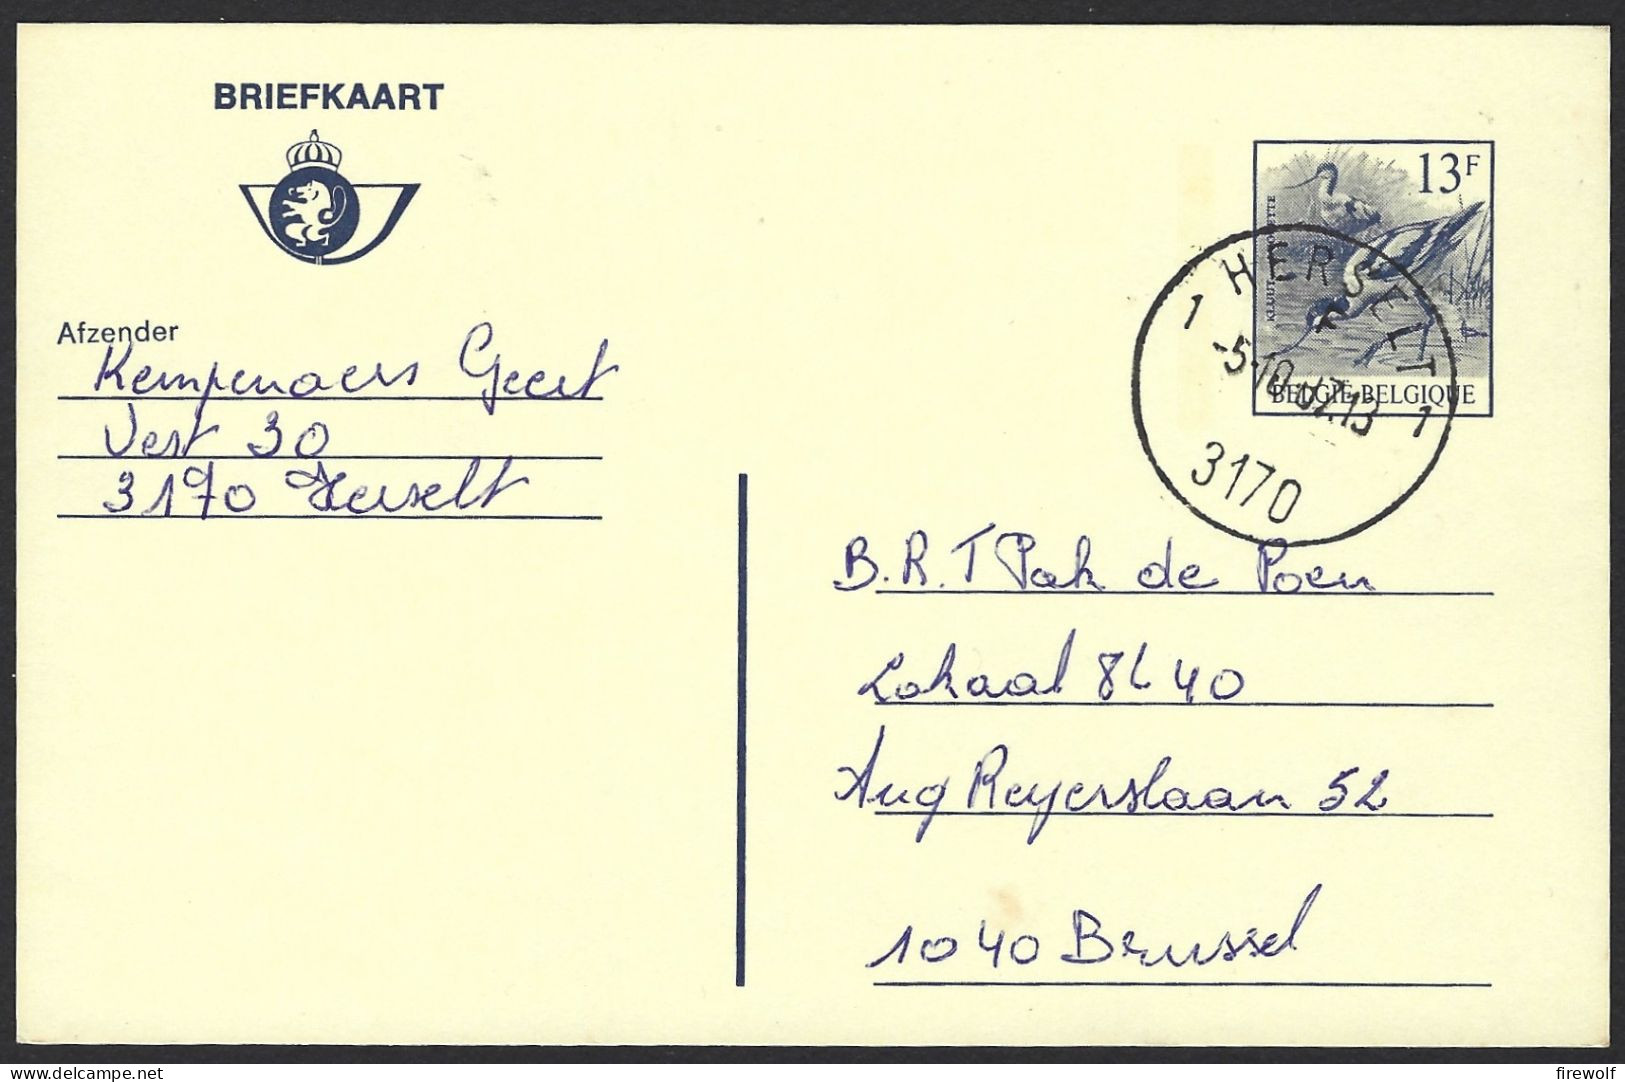 BRIEFKAART
Afzender
Kempenaers Geert
Vest 30
3170 Herselt
13F
KLUUT
BELGIË-BELGIQUE
1 HERSELT 1
-5-10-87.13
3170
B.R.T Pak de Poen
Lokaal 8L40
Aug Reyerslaan 52
1040 Brussel
delcampe.net
firewolf